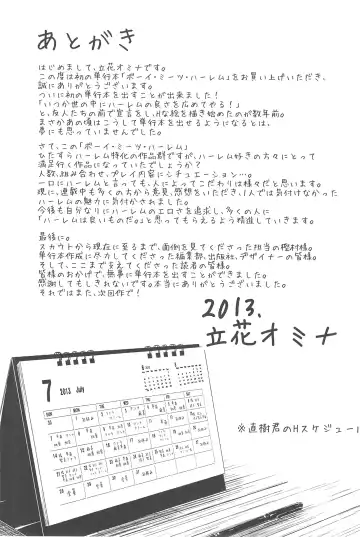 あとがき
はじめまして、立花オミナです。
この度は初の単行本「ボーイ・ミーツ・ハーレム」をお買い上げいただき、
誠にありがとうございます。
ついに初の単行本を出すことが出来ました!
「いつか世の中にハーレムの良さを広めてやる!」
と、友人たちの前で宣言をし、Hな絵を描き始めたのが数年前。
まさかあの頃はこうして単行本を出せるようになるとは、
夢にも思っていませんでした。
さて、この「ボーイ・ミーツ・ハーレム」
ひたすらハーレム特化の作品群ですが、ハーレム好きの方々にとって
満足行く作品になっていたでしょうか?
人数、組み合わせ、プレイ内容にシチュエーション…
一口にハーレムと言っても、人によってこだわりは様々だと思います。
現に、連載中も多くの方から意見、感想をいただき、1人では気付けなかった
ハーレムの魅力に気付かされました。
今後も自分なりにハーレムのエロさを追求し、多くの人に
「ハーレムは良いものだ。」と思ってもらえるよう精進していきます。
最後に。
スカウトから現在に至るまで、面倒を見てくださった担当の樫村様。
単行本作成に尽力してくださった編集部、出版社、デザイナーの皆様。
そして、ここまで支えてくださった読者の皆様。
皆様のおかげで、無事に単行本を出すことができました。
感謝してもしきれないです。本当にありがとうございました。
それではまた、次回作で!
2013.
立花オミナ
7
2013 July
※直樹君のHスケジュール